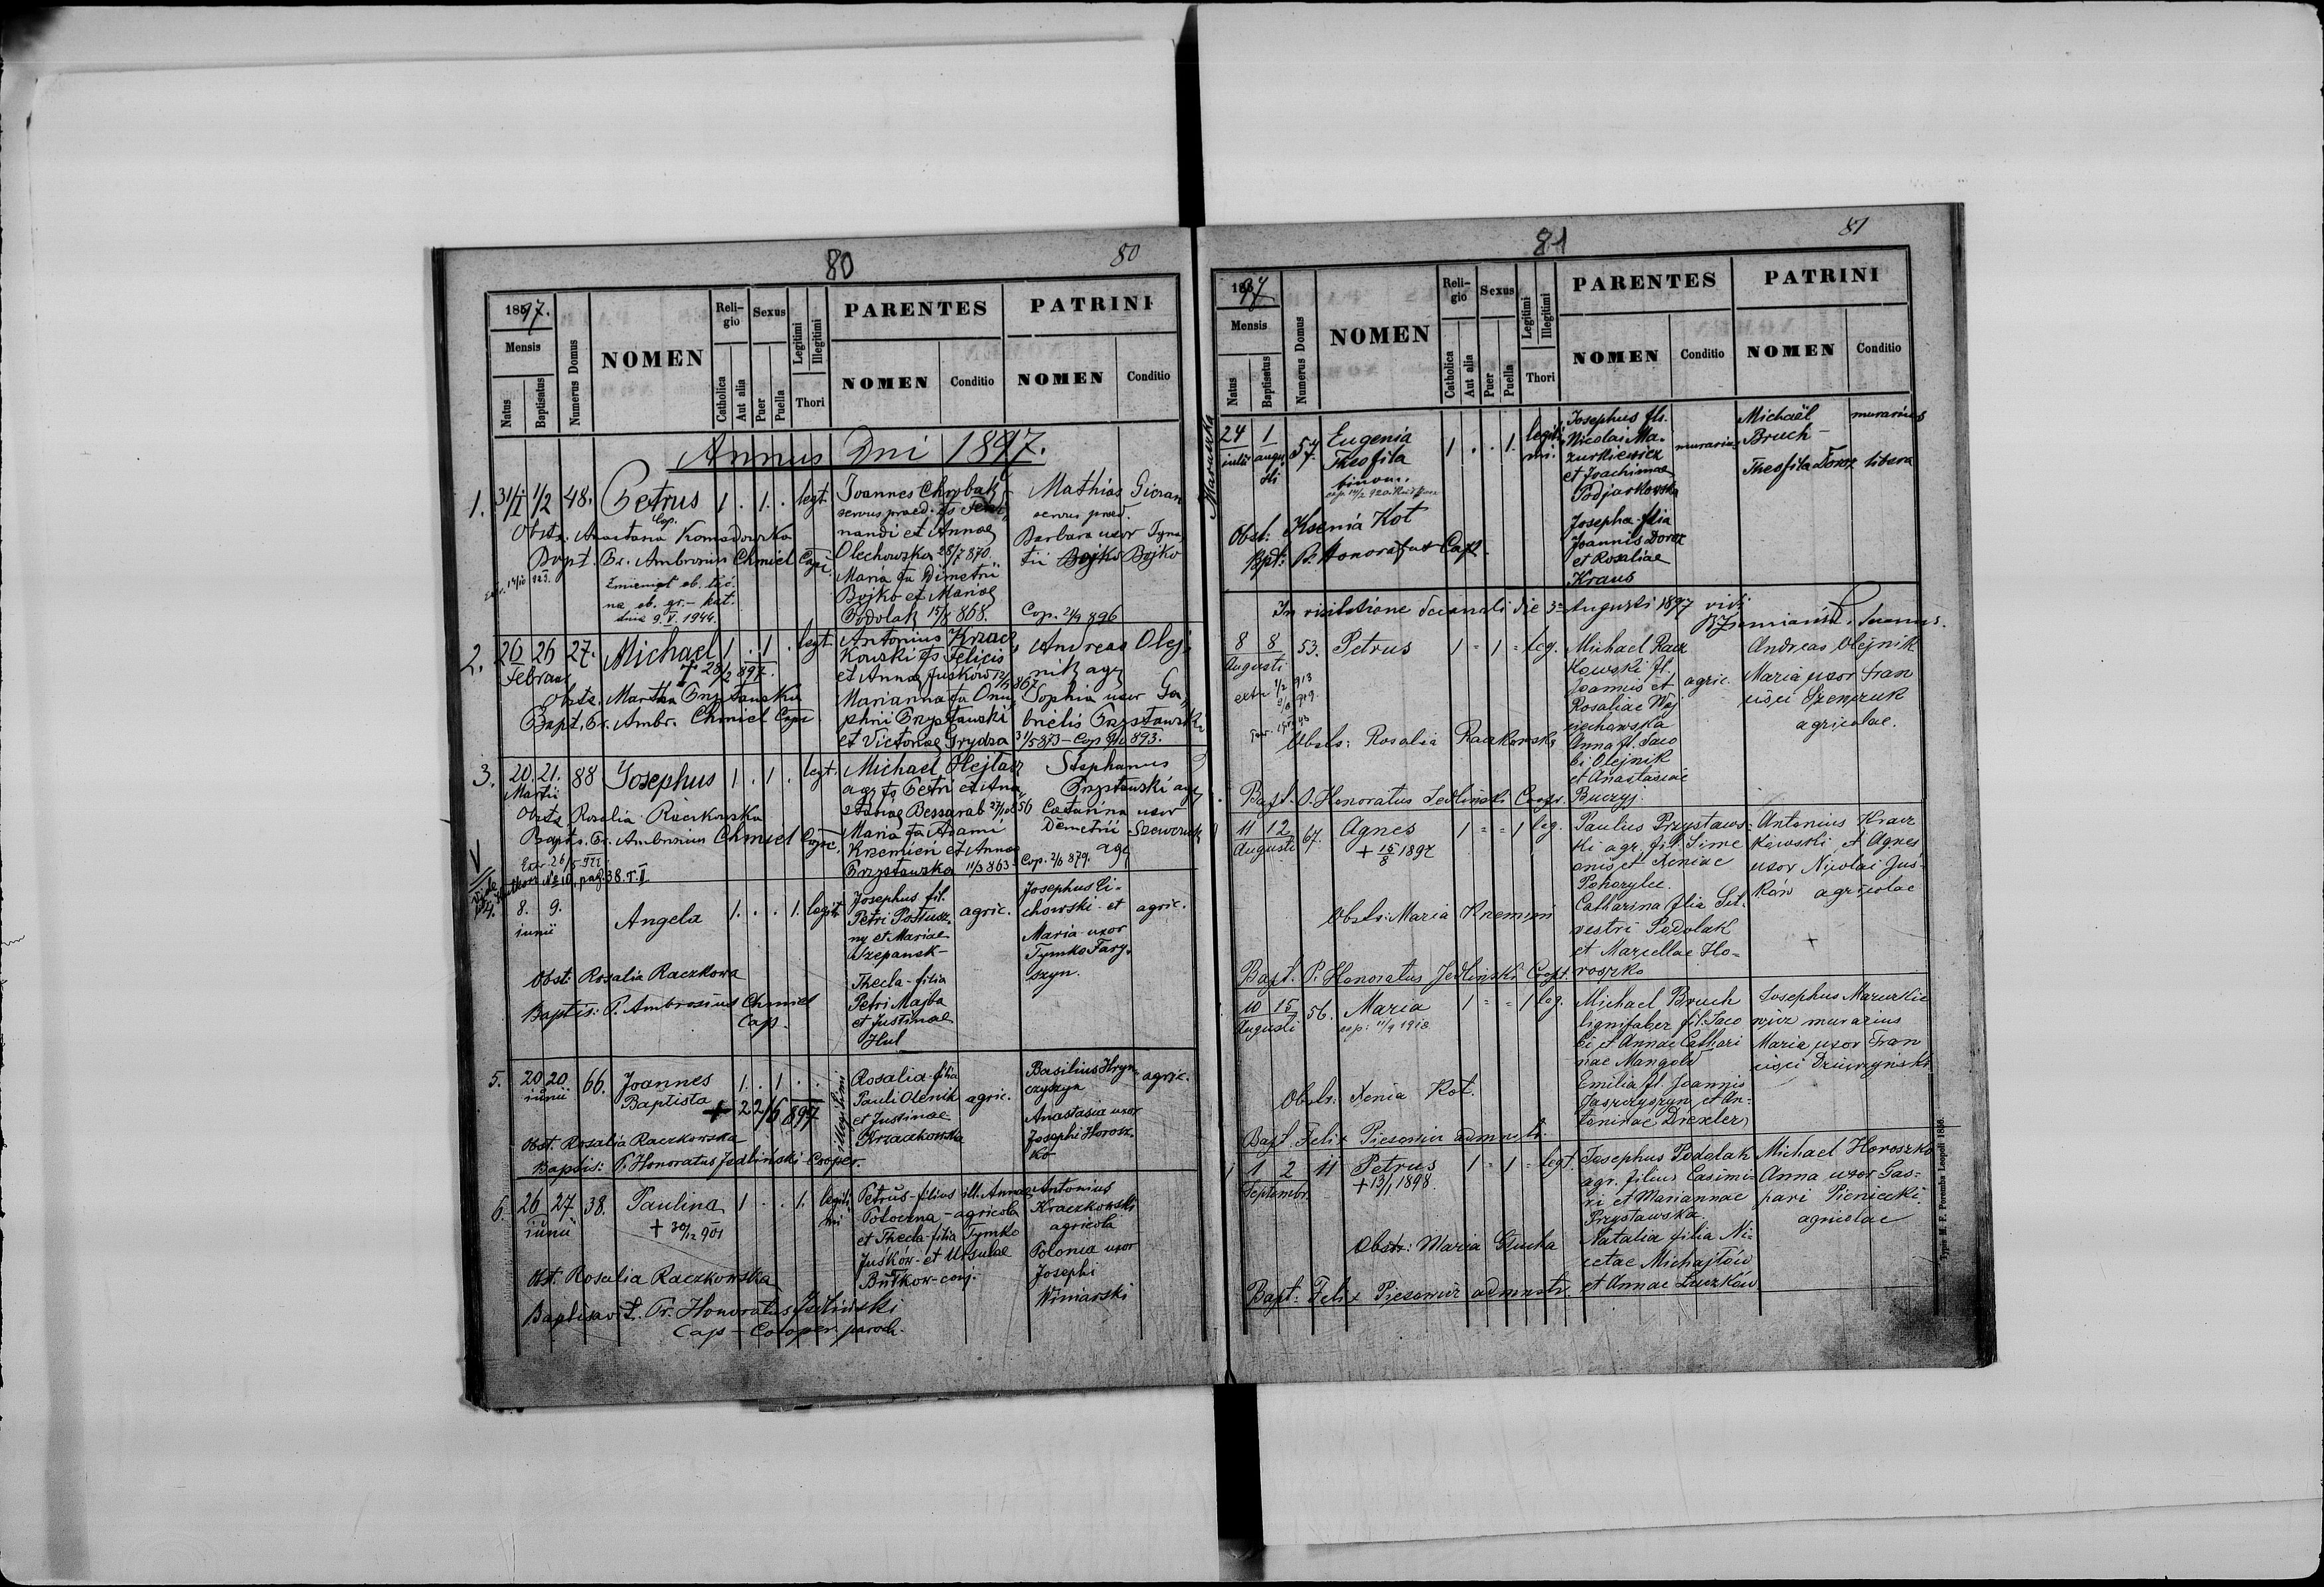 80 80
1897.
Mensis
Natus
Baptisatus
Numerus Domus
NOMEN
Religio
Catholica
Aut alia
Sexus
Puer
Puella
Legitimi
Illegitimi
Thori
PARENTES
NOMEN
Conditio
PATRINI
NOMEN
Conditio
Annus Dni 1897.
1. 31/I 1/2 48. Petrus 1 . 1 . legt.
Cop.
Obste. Anastasia Komadowska
Bapt. Pr. Ambrosius Chmiel Cap.
Zmienił ob. łać.
na ob. gr.-kat.
dnia 9.V.1944.
Joannes Chrobak
servus praed. fs Ferdi
nandi et Annae
Olechowska 28/7 870.
Maria fa Dimetrii
Bojko et Mariae
Podolak 15/8 868.
Mathias Gieran
servus praed.
Barbara uxor Igna
tii Bojko Bojko
Cop. 24/9 896
2. 26 26 27. Michael 1 . 1 . legt.
Februar + 28/2 897.
Obste. Martha Przystawska
Bapt. Pr. Ambr. Chmiel Cap.
Antonius Kracz
kowski fs Felicis
et Annae Juśków
Marianna fa Onu
phrii Przystawski
et Victoriae Grydza
Andreas Olej
nik agr
Sophia uxor Ga
brielis Przystawski
31/5 873 - Cop 893.
3. 20. 21. 88 Josephus 1 . 1 . legt.
Martii
Obste Rosalia Raczkowska
Bapt. Pr. Ambrosius Chmiel Cap.
pag. 38. T. II
Michael Hejtarz
agr fs Petri et Ana
stasiae Bessarab
Maria fa Adami
Krzemień et Annae
Przystawska 11/3 863
Stephanus
Przystawski agr
Catarina uxor
Demetrii Szewczuk
agr
Cop. 2/6 879.
4. 8. 9. Angela 1. . . 1. legit.
iunii
Obst. Rosalia Raczkowa
Baptis: P. Ambrosius Chmiel
Cap.
Josephus fil.
Petri Postusz
ny et Mariae
Szepansk-
Thecla-filia
Petri Majba
et Justinae
Hul
agric.
Josephus Ci-
chowski et
Maria uxor
Tymko Fary-
szyn.
agric.
5. 20 20 66. Joannes 1. . 1 . . illegitimi
iunii Baptista + 22/6 897
Obst. Rosalia Raczkowska
Baptis: P. Honoratus Jedliński-Cooper.
Rosalia-filia
Pauli Olenik
et Justinae
Kraczkowska
agric.
Basilius Hryn-
czyszyn
Anastasia uxor
Josephi Horosz-
ko
agric.
6. 26 27 38. Paulina 1 . . 1. legiti
iunii + 30/12 901 mi
Obst. Rosalia Raczkowska
Baptisavit. Pr. Honoratus Jedliński
Cap - Cooper. paroch.
Petrus-filius ill. Annae
Potoczna-agricola
et Thecla-filia Tymko
Juśków-et Ursulae
Butkow-conj.
Antonius
Kraczkowski
agricola
Polonia uxor
Josephi
Winiarski
81 81
1897
Mensis
Natus
Baptisatus
Numerus Domus
NOMEN
Religio
Catholica
Aut alia
Sexus
Puer
Puella
Legitimi
Illegitimi
Thori
PARENTES
NOMEN
Conditio
PATRINI
NOMEN
Conditio
24 1 57. Eugenia 1 . . 1. legiti
iulii augu Theofila mi.
sti binom.
Obst: Ksenia Kot
Bpt: P. Honoratus Cap.
Josephus fls.
Nicolai Ma-
zurkiewicz
et Joachimae
Podjarkowska
Josepha-filia
Joannis Dorosz
et Rosaliae
Kraus
murarius
Michaël murarius
Bruch-
Theofila Dorosz libera
In visitatione decanali die 3a Augusti 1897 vidi
Decanus.
8 8 53. Petrus 1 = 1 = leg.
Augusti
Obsts: Rosalia Raczkowska
Bapt. P. Honoratus Jedliński Coop.
Michael Racz
kowski fl.
Joannis et agric.
Rosaliae Woj
ciechowska
Anna fl. Jaco
bi Olejnik
et Anastasiae
Buczyj.
Andreas Olejnik
Maria uxor Fran
cisci Szewczuk
agricolae.
11 12 67. Agnes 1 = = 1 leg.
Augusti + 15/8 1897
Obsts: Maria Kremin
Bapt. P. Honoratus Jedliński Coop.
Paulus Przystaws-
ki agr. fil. Sime
onis et Xeniae
Pohorylec.
Catharina filia Sil-
vestri Podolak
et Marcellae Ho-
roszko
Antonius Kracz
kowski et Agnes
uxor Nicolai Juś-
ków agricolae
+
10 15 56. Maria 1 = = 1 leg.
Augusti cop: 11/9 1918
Obsts: Xenia Kot.
Bapt. Felix Piesowicz admnstr.
Michael Bruch
lignifaber fil. Jaco
bi et Annae Cathari
nae Mangold
Emilia fl. Joannis
Jaszczyszyn et An-
toninae Drexler
Josephus Mazurkie
wicz murarius
Maria uxor Fran
cisci Dziurzyński
1 2 11 Petrus 1 = 1 = legt.
Septembr. + 13/1 1898.
Obstr: Maria Głucha
Bapt: Felix Piesowicz admnstr.
Josephus Podolak
agr. filius Casimi-
ri et Mariannae
Przystawska.
Natalia filia Ni-
cetae Michajłów
et Annae Łuczków
Michael Horoszko
Anna uxor Gas-
pari Pieniecki
agricolae
Typis M. F. Poremba Leopoli 1856.